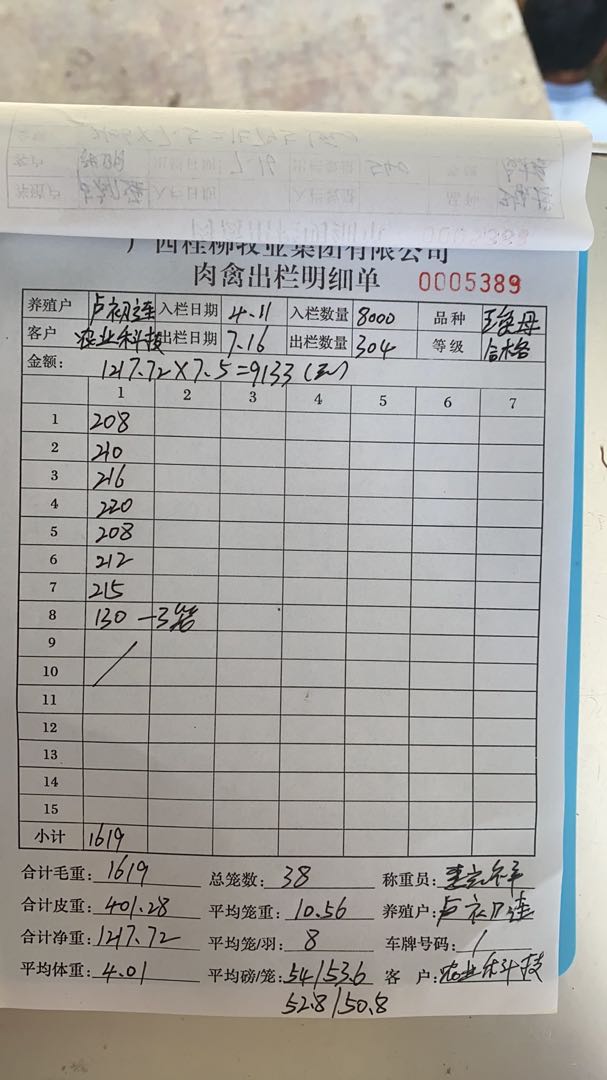 广西桂柳牧业集团有限公司
肉禽出栏明细单 0005389
养殖户 卢初连 入栏日期 4.11 入栏数量 8000 品种
客户 农业科技 出栏日期 7.16 出栏数量 304 等级 合格
金额: 1217.72×7.5=9133(元)
1 2 3 4 5 6 7
1 208
2 210
3 216
4 220
5 208
6 212
7 215
8 130 一3笼
9
10
11
12
13
14
15
小计 1619
合计毛重: 1619 总笼数: 38 称重员:
合计皮重: 401.28 平均笼重: 10.56 养殖户: 卢初连
合计净重: 1217.72 平均笼/羽: 8 车牌号码: /
平均体重: 4.01 平均磅/笼: 54/53.6 客户: 农业科技
52.8/50.8